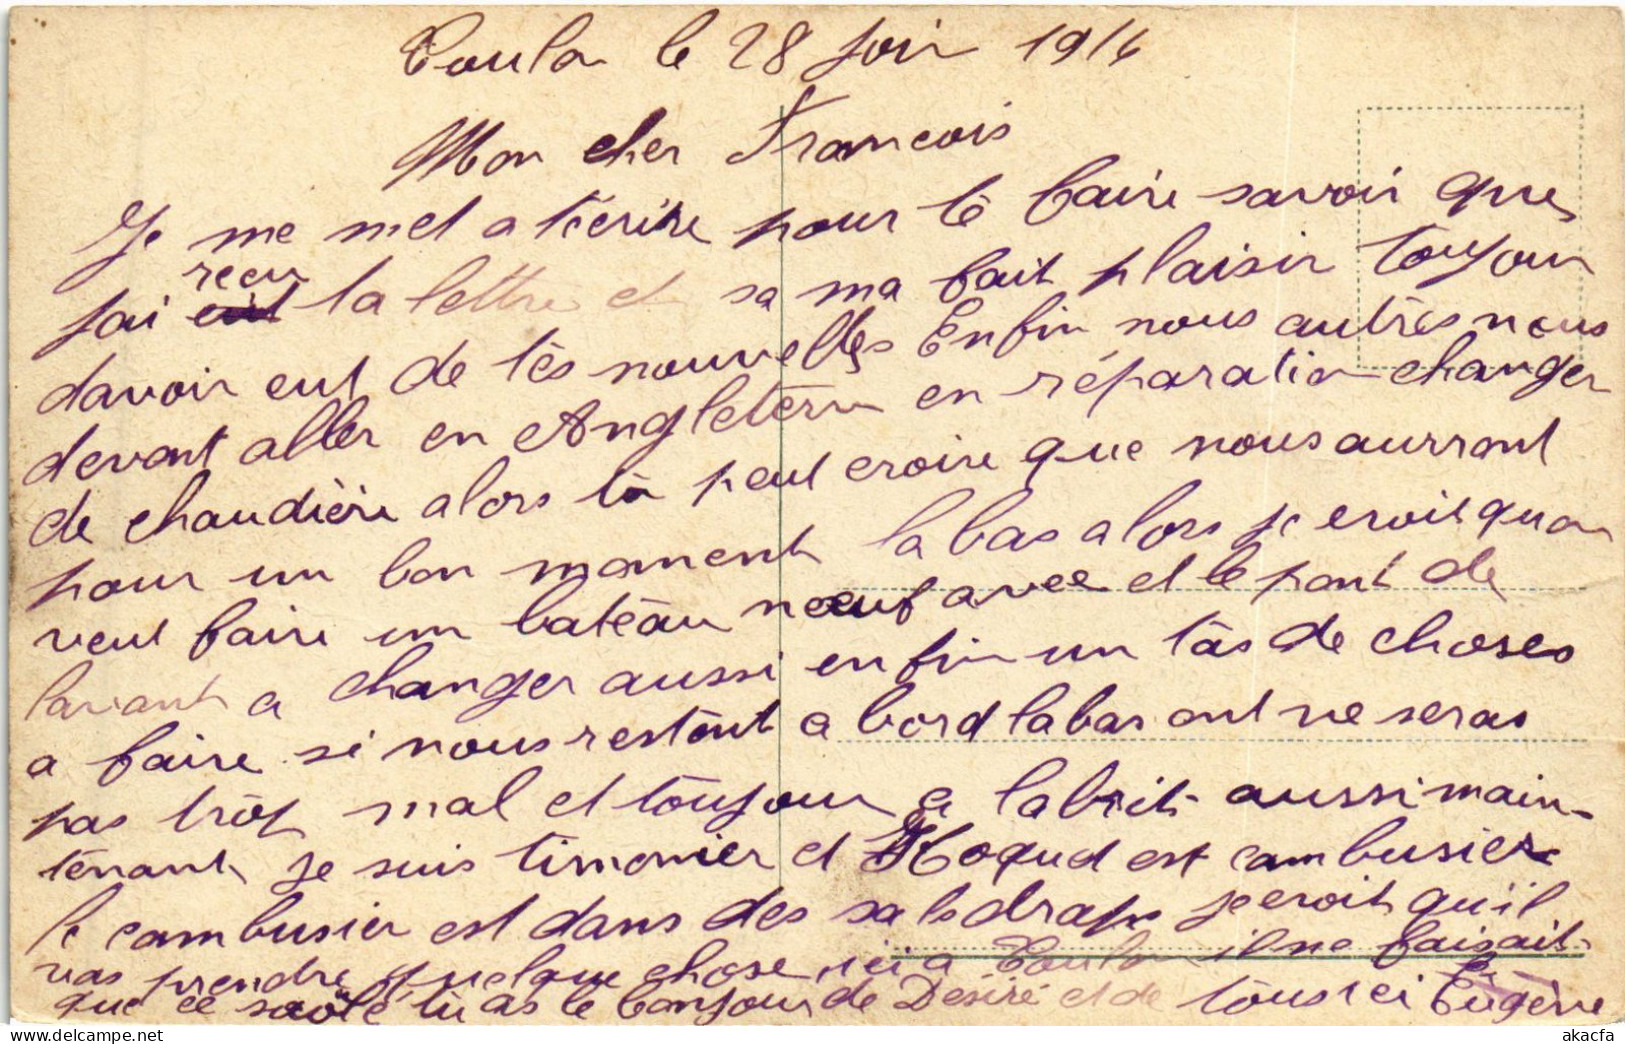 Toulon le 28 Juin 1914
Mon cher Francois
Je me met a técrire pour te faire savoir que
reçu
jai ta lettre et sa ma fait plaisir toujour
davoir eut de tes nouvelles Enfin nous autres nous
devont aller en Angleterre en réparation changer
de chaudière alors tu peut croire que nous aurront
pour un bon moment la bas alors je croit quon
veut faire un bateau neuf avec et le pont de
lavant a changer aussi enfin un tas de choses
a faire si nous restont a bord la bas ont ne seras
pas trop mal et toujour a labrit aussi main-
tenant je suis timonier et Hoquet est cambusier
le cambusier est dans des sals draps je croit qu'il
vas prendre quelque chose ici a Toulon il ne faisait
que ce saoulé tu as le bonjour de Désiré et de tous ici Eugène
akacfa